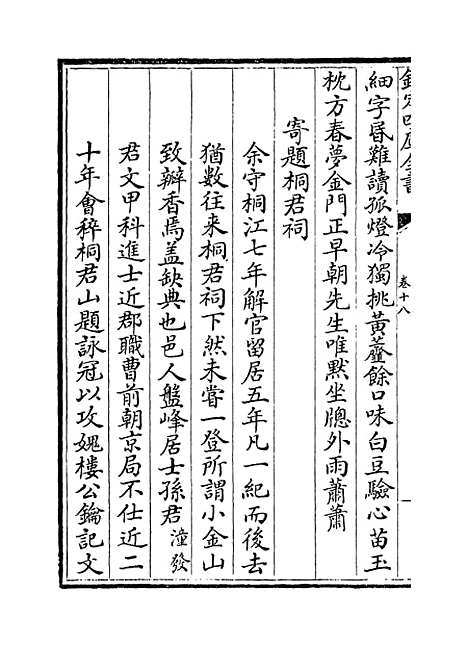 欽定四庫全書
卷十八
細字昬難讀孤燈冷獨挑黄虀餘口味白豆驗心苗玉
枕方春夢金門正早朝先生唯默坐牕外雨蕭蕭
寄題桐君祠
余守桐江七年解官留居五年凡一紀而後去
猶數往来桐君祠下然未嘗一登所謂小金山
致瓣香焉盖缺典也邑人盤峰居士孫君潼發
君文甲科進士近郡職曹前朝京局不仕近二
十年會稡桐君山題詠冠以攻媿樓公鑰記文